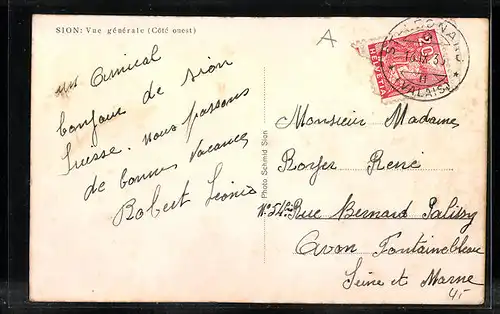 SION: Vue générale (Côté ouest)
un Amical
bonjour de Sion
Suisse. nous passons
de bonnes vacances
Robert Léonie
Photo Schmid Sion
A
HELVETIA
ST. LEONARD
(VALAIS)
Monsieur Madame
Royer René
N° 54 Rue Bernard Palissy
Avon Fontainebleau
Seine et Marne
4.-